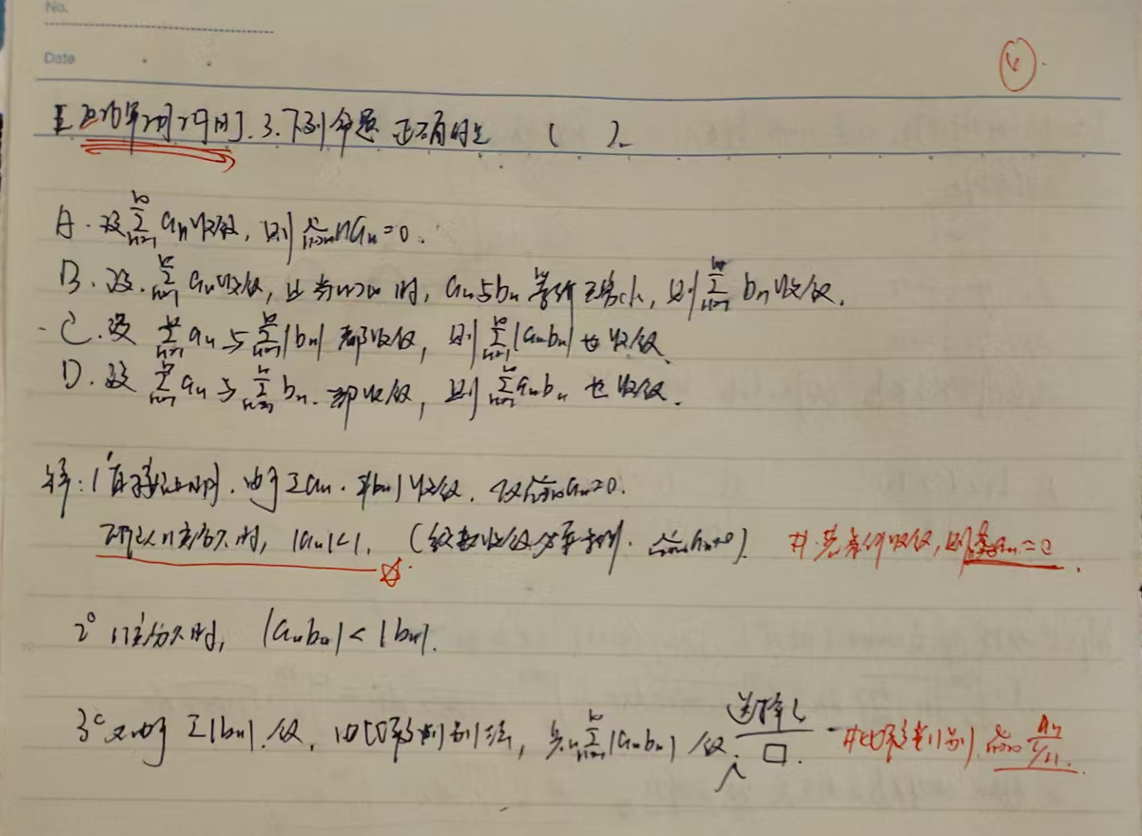 No.
Date
④
【2026年2月29日】. 3. 下列命题正确的是 ( ).
A. 设 $\sum_{n=1}^{\infty} a_n$ 收敛, 则 $\lim_{n\to\infty} na_n=0$.
B. 设. $\sum_{n=1}^{\infty} a_n$ 收敛, 且当 n→∞ 时, $a_n$ 与 $b_n$ 等价无穷小, 则 $\sum_{n=1}^{\infty} b_n$ 收敛.
C. 设 $\sum_{n=1}^{\infty} a_n$ 与 $\sum_{n=1}^{\infty} |b_n|$ 都收敛, 则 $\sum_{n=1}^{\infty} |a_nb_n|$ 也收敛.
D. 设 $\sum_{n=1}^{\infty} a_n$ 与 $\sum_{n=1}^{\infty} b_n$. 都收敛, 则 $\sum_{n=1}^{\infty} a_nb_n$ 也收敛.
解: 1° 直接证明. 由于 $\sum a_n$. $\sum |b_n|$ 收敛. 故 $\lim_{n\to\infty} a_n=0$.
所以 n 充分大时, $|a_n|<1$. (级数收敛必要条件.
#. 若条件收敛, 则
2° n 充分大时, $|a_nb_n|<|b_n|$.
3° 又由于 $\sum |b_n|$. 收, 由比较判别法, 知 $\sum_{n=1}^{\infty} |a_nb_n|$ 收. 选择 C
□.
#比较判别.